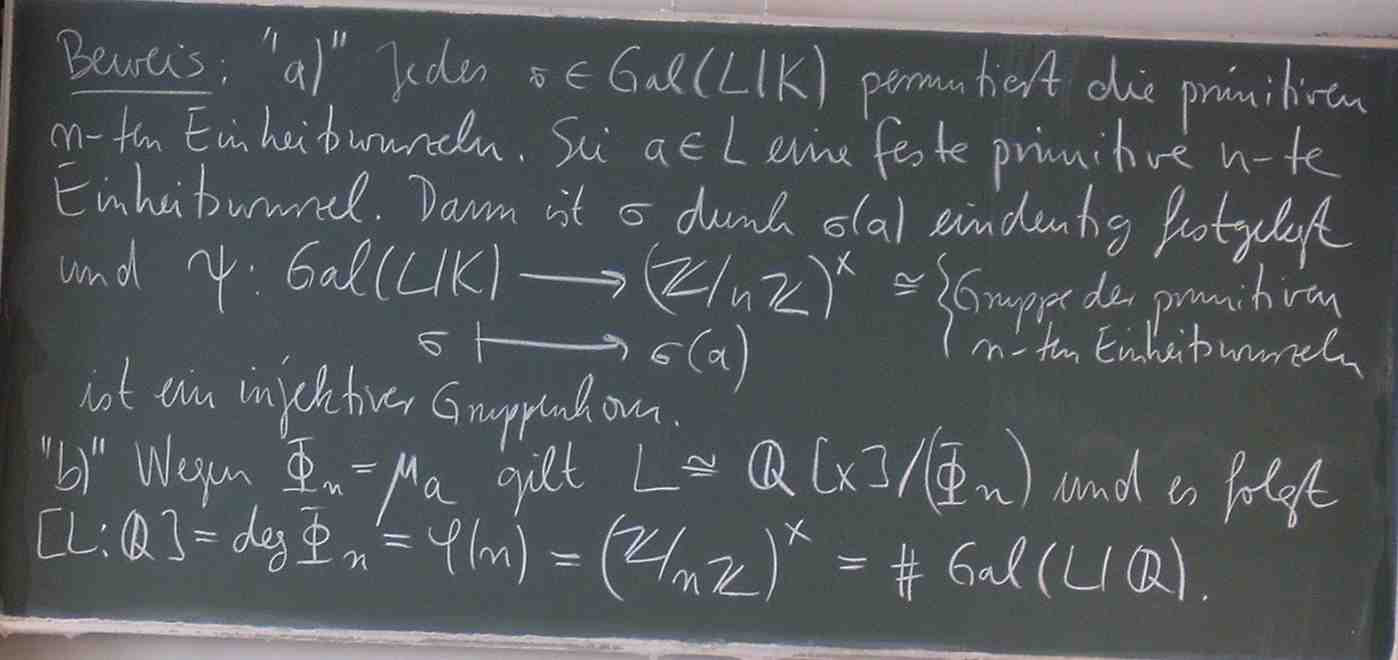 Beweis: "a)" Jedes σ ∈ Gal(L|K) permutiert die primitiven
n-ten Einheitswurzeln. Sei a ∈ L eine feste primitive n-te
Einheitswurzel. Dann ist σ durch σ(a) eindeutig festgelegt
und ψ: Gal(L|K) ⟶ (ℤ/nℤ)^× ≅ {Gruppe der primitiven
n-ten Einheitswurzeln
σ ⟼ σ(a)
ist ein injektiver Gruppenhom.
"b)" Wegen Φ_n = μ_a gilt L ≅ ℚ[x]/(Φ_n) und es folgt
[L:ℚ] = deg Φ_n = φ(n) = (ℤ/nℤ)^× = # Gal(L|ℚ).